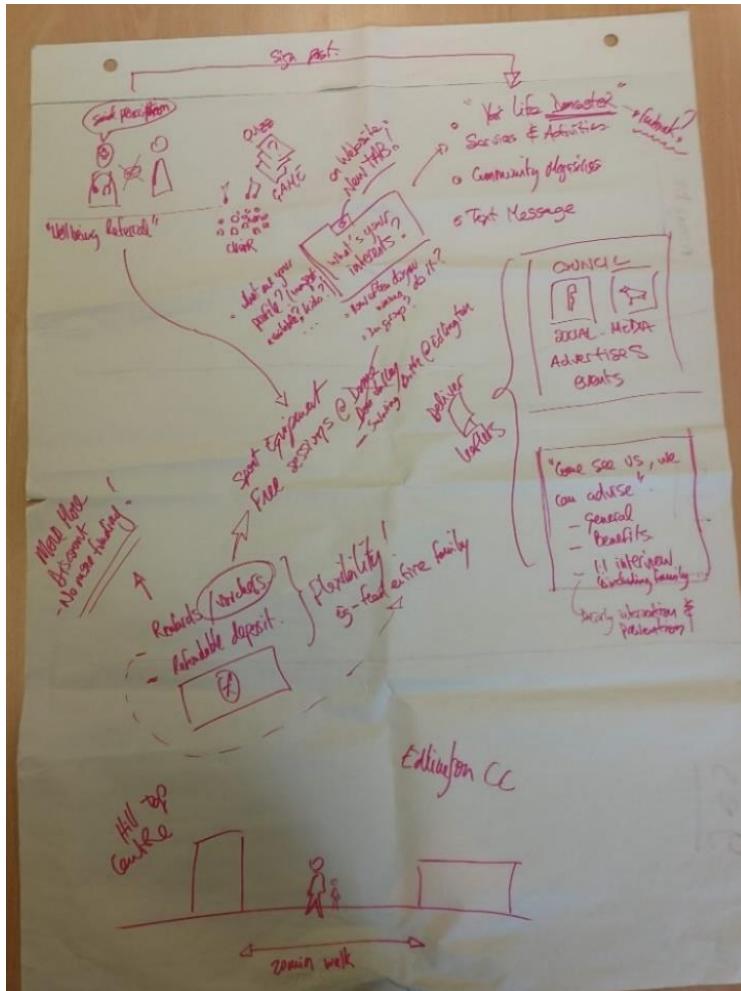 Sign post.
Social prescription
"Wellbeing Referrals"
QUIZZ
?
GAME
CHOIR
on Website
New TAB!
What's your
interests?
• what are your
profile?
available, kids?
...
• How often do you
do it?
• In group?
• "Your Life Doncaster"
Services & Activities
• Community Magazines
• Text Message
COUNCIL
SOCIAL - MEDIA
Advertises
events
Deliver
leaflets
"Come see us, we
can advise"
- General
- Benefits
- 1:1 interview
including family
early intervention &
prevention
Sport Equipment
Free sessions @ Dome
- including @ Edlington
More
Discount
- No more funding!
- Rewards / vouchers
- Refundable deposit.
£
Flexibility!
eg - feed entire family
Edlington CC
Hill Top
Centre
20min walk